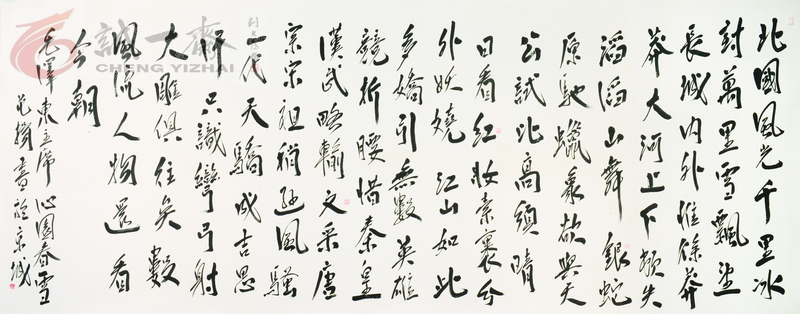 北國風光千里冰
封萬里雪飄望
長城内外惟餘莽
莽大河上下頓失
滔滔山舞銀蛇
原馳蠟象欲與天
公試比高須晴
日看紅妝素裹分
外妖嬈江山如此
多嬌引無數英雄
競折腰惜秦皇
漢武略輸文采唐
宗宋祖稍遜風騷
一代天驕成吉思
汗只識彎弓射
大雕俱往矣數
風流人物還看
今朝
毛澤東主席沁園春雪
書於京城
誠一齋
CHENG YIZHAI